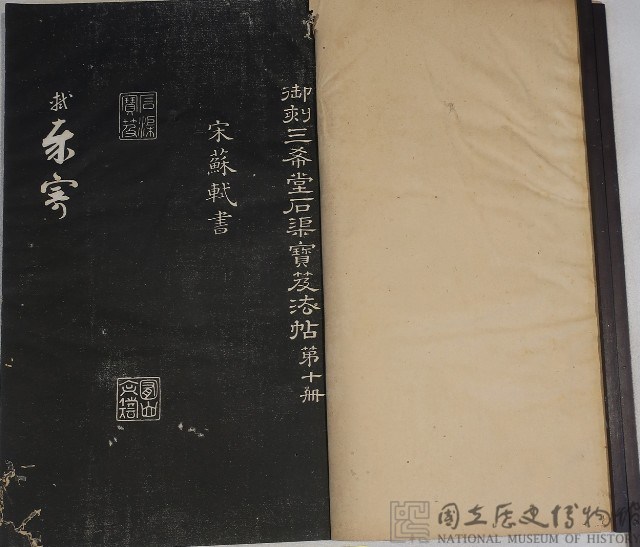 御刻三希堂石渠寶笈法帖第十册
宋蘇軾書
石渠寶笈
軾
國立歷史博物館
NATIONAL MUSEUM OF HISTORY